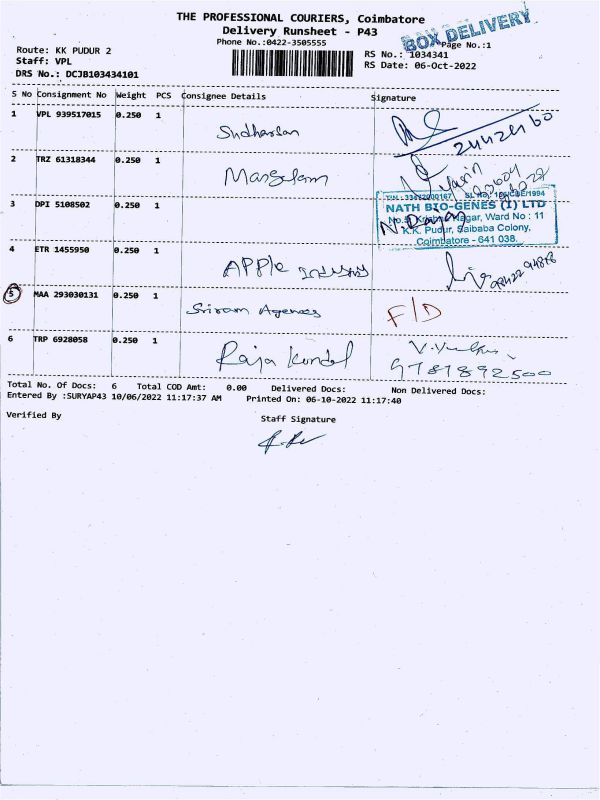 THE PROFESSIONAL COURIERS, Coimbatore
Delivery Runsheet - P43
Phone No.:0422-3505555
BOX DELIVERY
Page No.:1
Route: KK PUDUR 2
RS No.: 1034341
Staff: VPL
RS Date: 06-Oct-2022
DRS No.: DCJB103434101
S No Consignment No Weight PCS Consignee Details Signature
1 VPL 939517015 0.250 1 Sudharsan
2 TRZ 61318344 0.250 1 Mangalam
3 DPI 5108502 0.250 1
NATH BIO-GENES (I) LTD
Nagar, Ward No : 11
K.K. Pudur, Saibaba Colony,
Coimbatore - 641 038.
4 ETR 1455950 0.250 1 APPle
5 MAA 293030131 0.250 1 Sriram Agencies F/D
6 TRP 6928058 0.250 1 Raja
9787892500
Total No. Of Docs: 6 Total COD Amt: 0.00 Delivered Docs: Non Delivered Docs:
Entered By :SURYAP43 10/06/2022 11:17:37 AM Printed On: 06-10-2022 11:17:40
Verified By Staff Signature